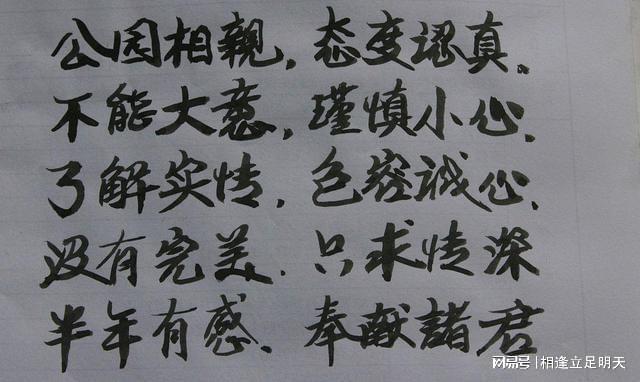 公园相親，态度認真。
不能大意，瑾慎小心。
了解实情，色容诚心。
没有完美．只求情深
半年有感．奉献諸君
网易号 | 相逢立足明天